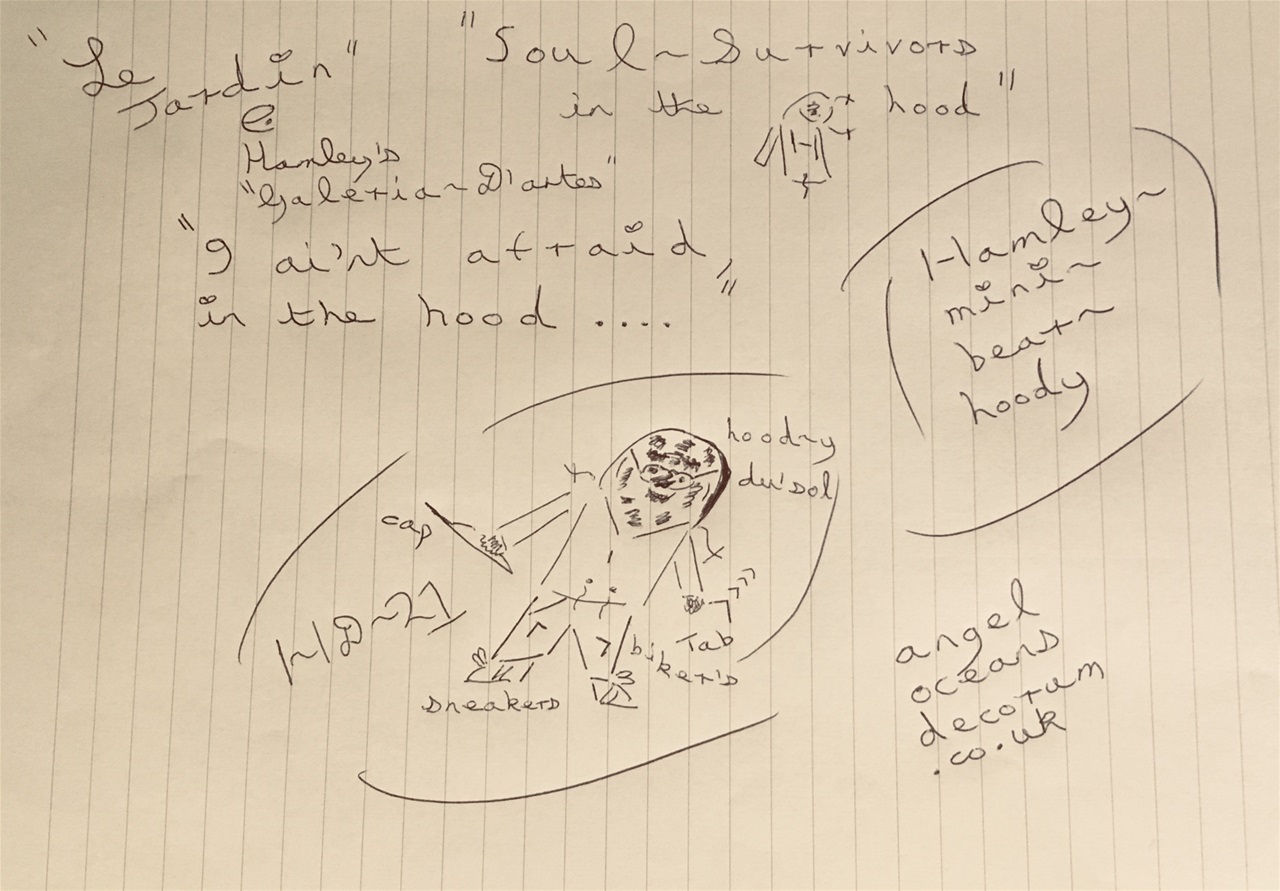 "Le
Jardin"
@
Hamley's
"Galeria~D'artes"
"Soul~Survivors
in the hood"
"I ai'nt afraid
in the hood ...."
Hamley~
mini~
bear~
hoody
hood~y
du'sol
cap
HD~21
Tab
biker's
sneakers
angel
oceans
decorum
.co.uk